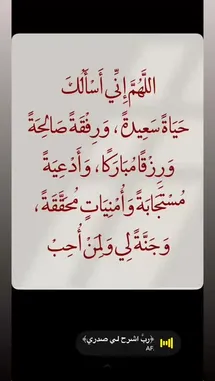 اللَّهُمَّ إِنِّي أَسْأَلُكَ
حَيَاةً سَعِيدَةً ، وَرِفْقَةً صَالِحَةً
وَرِزْقًا مُبَارَكًا ، وَأَدْعِيَةً
مُسْتَجَابَةً وَأُمْنِيَاتٍ مُحَقَّقَةً ،
وَجَنَّةً لِي وَلِمَنْ أُحِبْ
﴿ربِّ اشرح لي صدري﴾
AF.